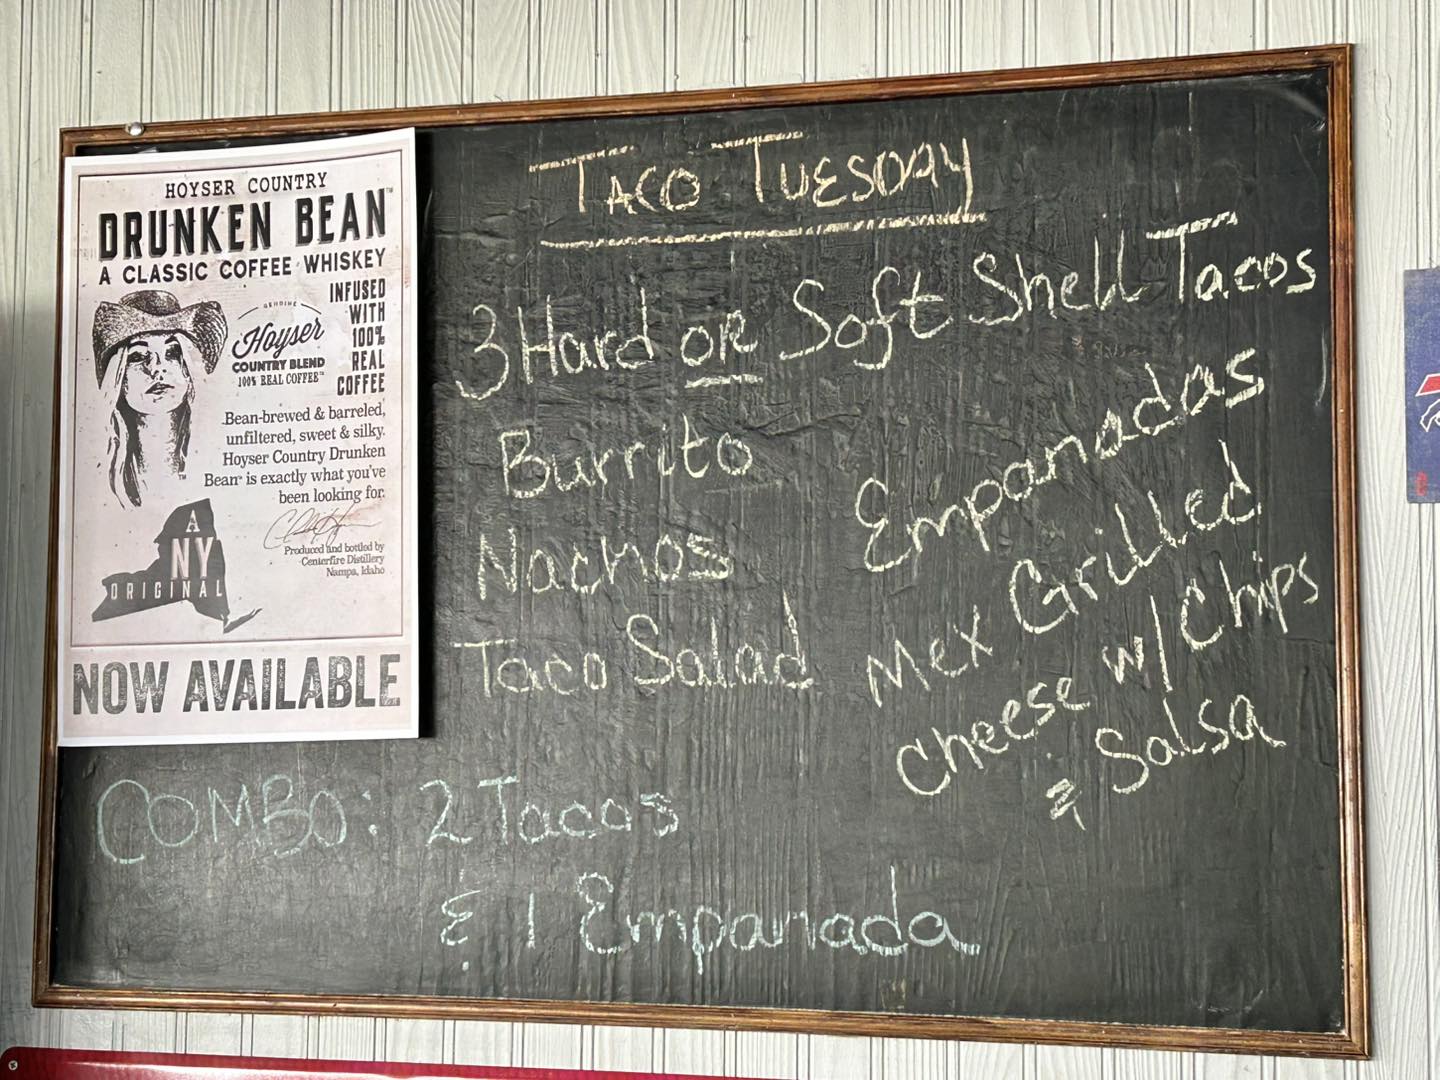 HOYSER COUNTRY
DRUNKEN BEAN™
A CLASSIC COFFEE WHISKEY
GENUINE
Hoyser
COUNTRY BLEND
100% REAL COFFEE™
INFUSED
WITH
100%
REAL
COFFEE
Bean-brewed & barreled,
unfiltered, sweet & silky.
Hoyser Country Drunken
Bean™ is exactly what you've
been looking for.
™
Produced and bottled by
Centerfire Distillery
Nampa, Idaho
A
NY
ORIGINAL
NOW AVAILABLE
TACO TUESDAY
3 Hard OR Soft Shell Tacos
Burrito
Nachos
Taco Salad
Empanadas
Mex Grilled
Cheese w/ Chips
& Salsa
COMBO: 2 Tacos
& 1 Empanada